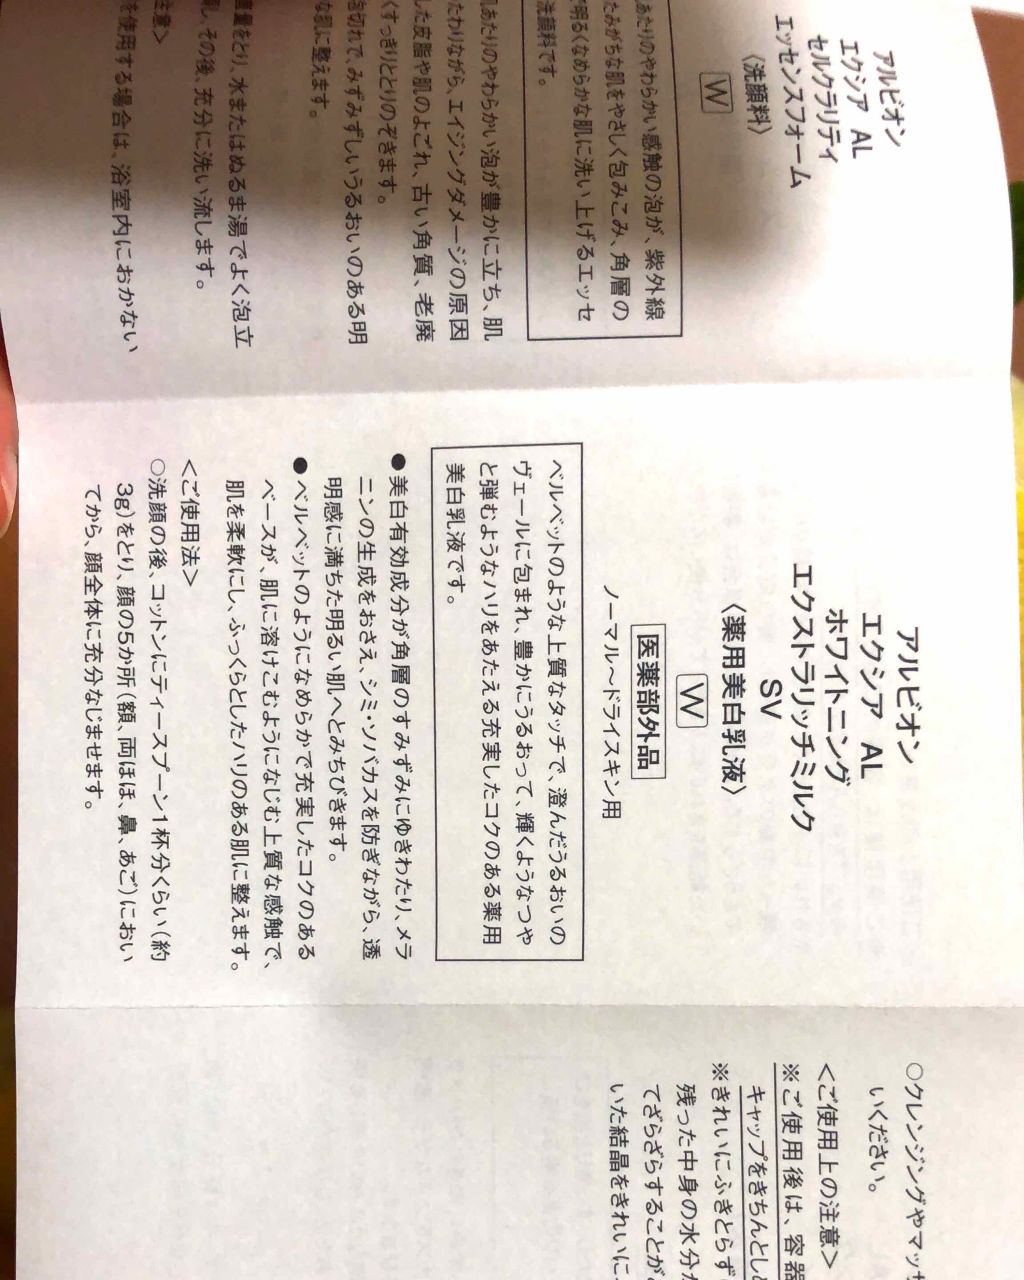 アルビオン
エクシア AL
セルクラリティ
エッセンスフォーム
〈洗顔料〉
W
あたりのやわらかい感触の泡が、紫外線
たみがちな肌をやさしく包みこみ、角層の
で明るくなめらかな肌に洗い上げるエッセ
洗顔料です。
肌あたりのやわらかい泡が豊かに立ち、肌
たわりながら、エイジングダメージの原因
した皮脂や肌のよごれ、古い角質、老廃
くすっきりとりのぞきます。
泡切れで、みずみずしいうるおいのある明
な肌に整えます。
量をとり、水またはぬるま湯でよく泡立
顔し、その後、充分に洗い流します。
注意>
を使用する場合は、浴室内におかない
アルビオン
エクシア AL
ホワイトニング
エクストラリッチミルク
SV
〈薬用美白乳液〉
W
医薬部外品
ノーマル～ドライスキン用
ベルベットのような上質なタッチで、澄んだうるおいの
ヴェールに包まれ、豊かにうるおって、輝くようなつや
と弾むようなハリをあたえる充実したコクのある薬用
美白乳液です。
●美白有効成分が角層のすみずみにゆきわたり、メラ
ニンの生成をおさえ、シミ・ソバカスを防ぎながら、透
明感に満ちた明るい肌へとみちびきます。
●ベルベットのようになめらかで充実したコクのある
ベースが、肌に溶けこむようになじむ上質な感触で、
肌を柔軟にし、ふっくらとしたハリのある肌に整えます。
<ご使用法>
○洗顔の後、コットンにティースプーン1杯分くらい(約
3g)をとり、顔の5か所(額、両ほほ、鼻、あご)におい
てから、顔全体に充分なじませます。
○クレンジングやマッサ
いください。
<ご使用上の注意>
※ご使用後は、容器
キャップをきちんとし
※きれいにふきとらず
残った中身の水分が
てざらざらすることが
いた結晶をきれいに